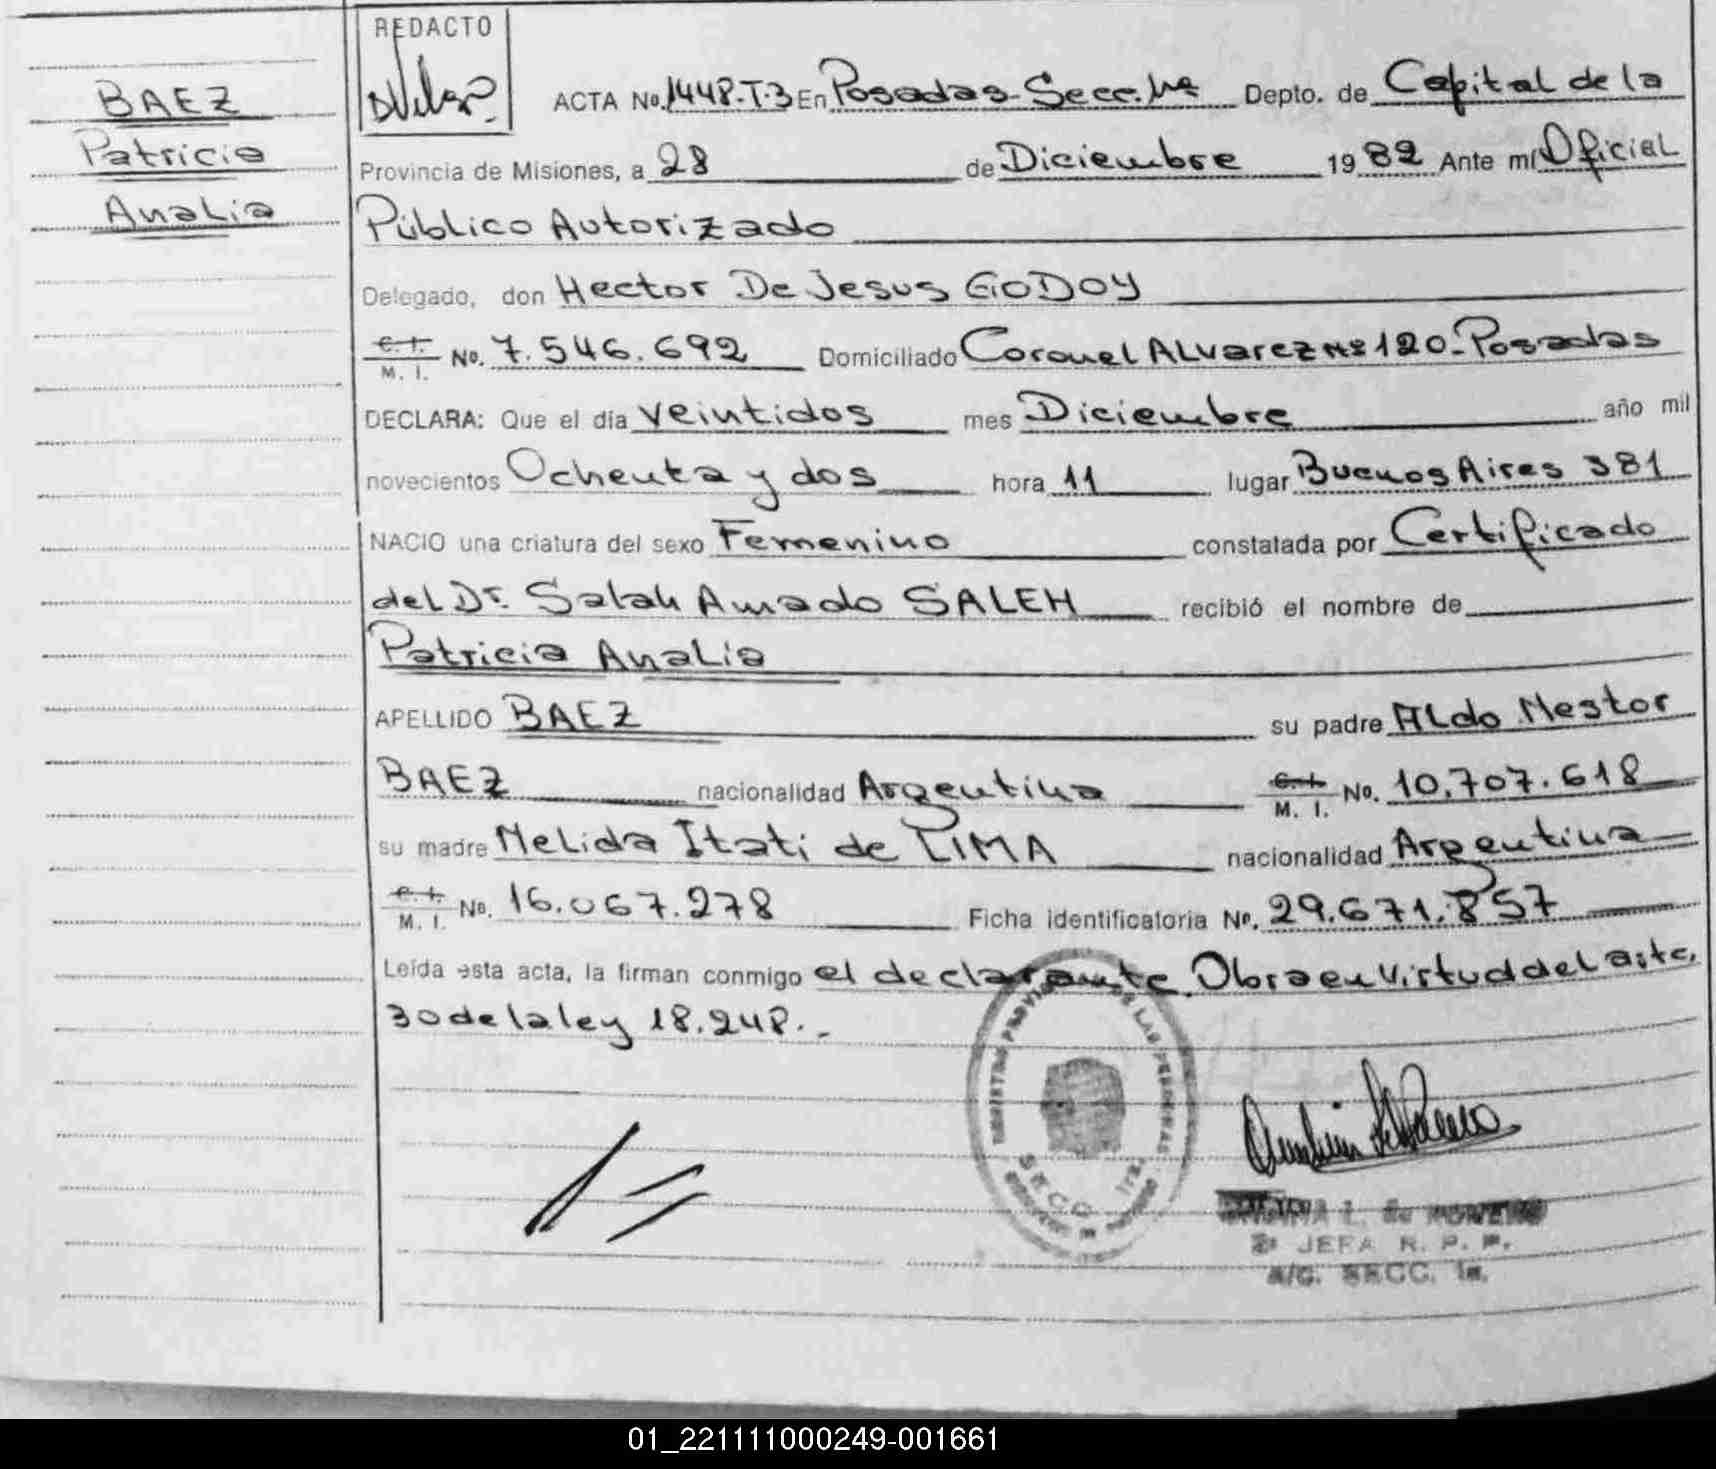 REDACTO
BAEZ
Patricia
Analia
ACTA No. 1448-T-3 En Posadas Secc. 1ra Depto. de Capital de la
Provincia de Misiones, a 28 de Diciembre 1982 Ante mí Oficial
Público Autorizado
Delegado, don Hector De Jesus GODOY
C. I. M. I. No. 7.546.692 Domiciliado Coronel Alvarez Nº 120 - Posadas
DECLARA: Que el día veintidos mes Diciembre año mil
novecientos Ochenta y dos hora 11 lugar Buenos Aires 381
NACIO una criatura del sexo Femenino constatada por Certificado
del Dr. Salah Amado SALEH recibió el nombre de
Patricia Analia
APELLIDO BAEZ su padre Aldo Nestor
BAEZ nacionalidad Argentina C. I. M. I. No. 10.707.618
su madre Nelida Itati de LIMA nacionalidad Argentina
C. I. M. I. No. 16.067.278 Ficha identificatoria No. 29.671.857
Leída esta acta, la firman conmigo el declarante. Obra en virtud del arte.
30 de la ley 18.248.-
SECC. 1ra.
L. de MORENO
2ª JEFA R. P. P.
A/C. SECC. 1a.
01_221111000249-001661